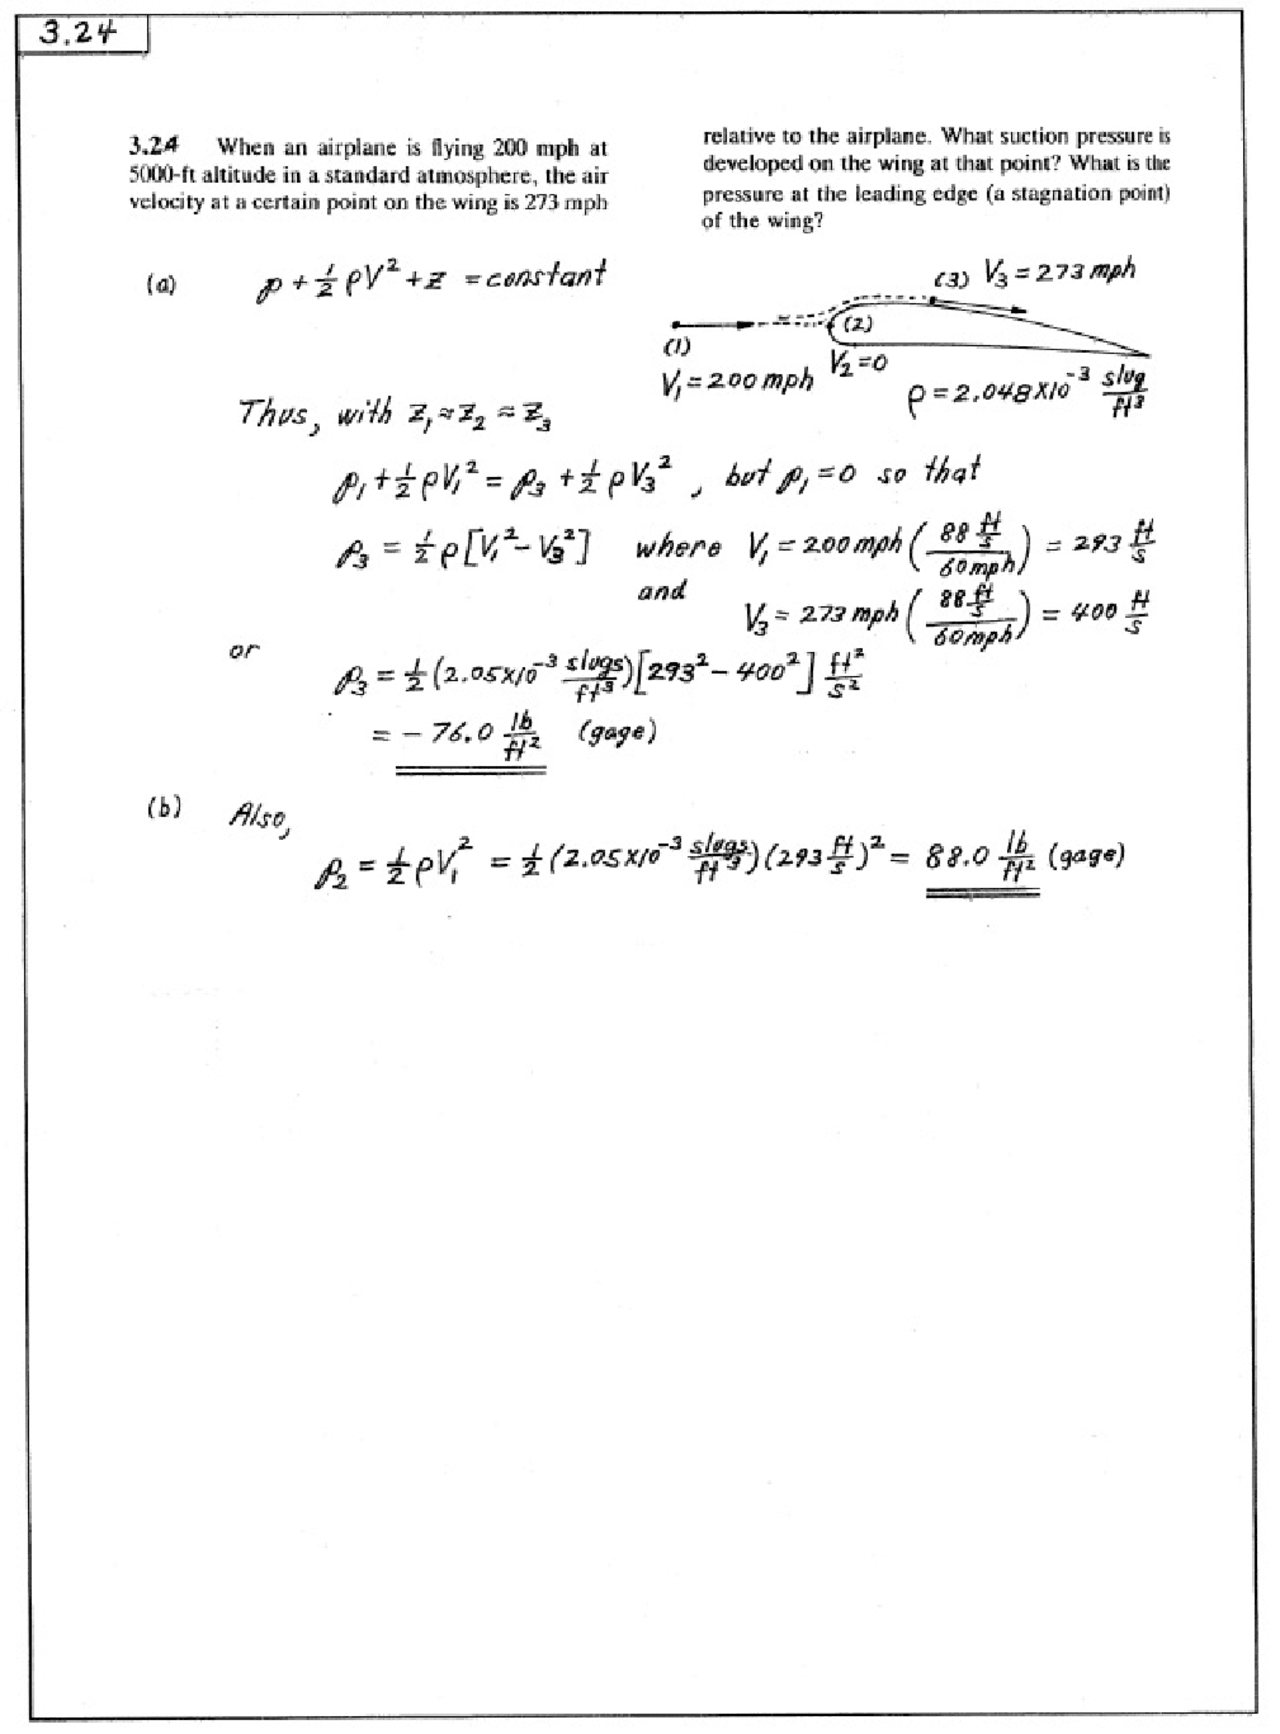 3.24
3.24 When an airplane is flying 200 mph at
5000-ft altitude in a standard atmosphere, the air
velocity at a certain point on the wing is 273 mph
relative to the airplane. What suction pressure is
developed on the wing at that point? What is the
pressure at the leading edge (a stagnation point)
of the wing?
(a) p + 1/2 ρV² + z = constant
(3) V₃ = 273 mph
(2)
(1)
V₂ = 0
V₁ = 200 mph
ρ = 2.048×10⁻³ slug/ft³
Thus, with z₁ ≈ z₂ ≈ z₃
p₁ + 1/2 ρV₁² = p₃ + 1/2 ρV₃² , but p₁ = 0 so that
p₃ = 1/2 ρ[V₁² − V₃²] where V₁ = 200 mph (88 ft/s / 60 mph) = 293 ft/s
and
V₃ = 273 mph (88 ft/s / 60 mph) = 400 ft/s
or
p₃ = 1/2 (2.05×10⁻³ slugs/ft³)[293² − 400²] ft²/s²
= − 76.0 lb/ft² (gage)
(b) Also,
p₂ = 1/2 ρV₁² = 1/2 (2.05×10⁻³ slugs/ft³)(293 ft/s)² = 88.0 lb/ft² (gage)